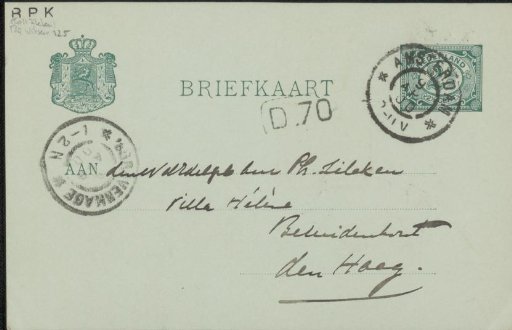 RPK
BRIEFKAART
AMSTERDAM
D.70
1-2 N
'S GRAVENHAGE
AAN den Weledelgeb heer Ph. Zilcken
Villa Hélène
Bezuidenhout
den Haag.